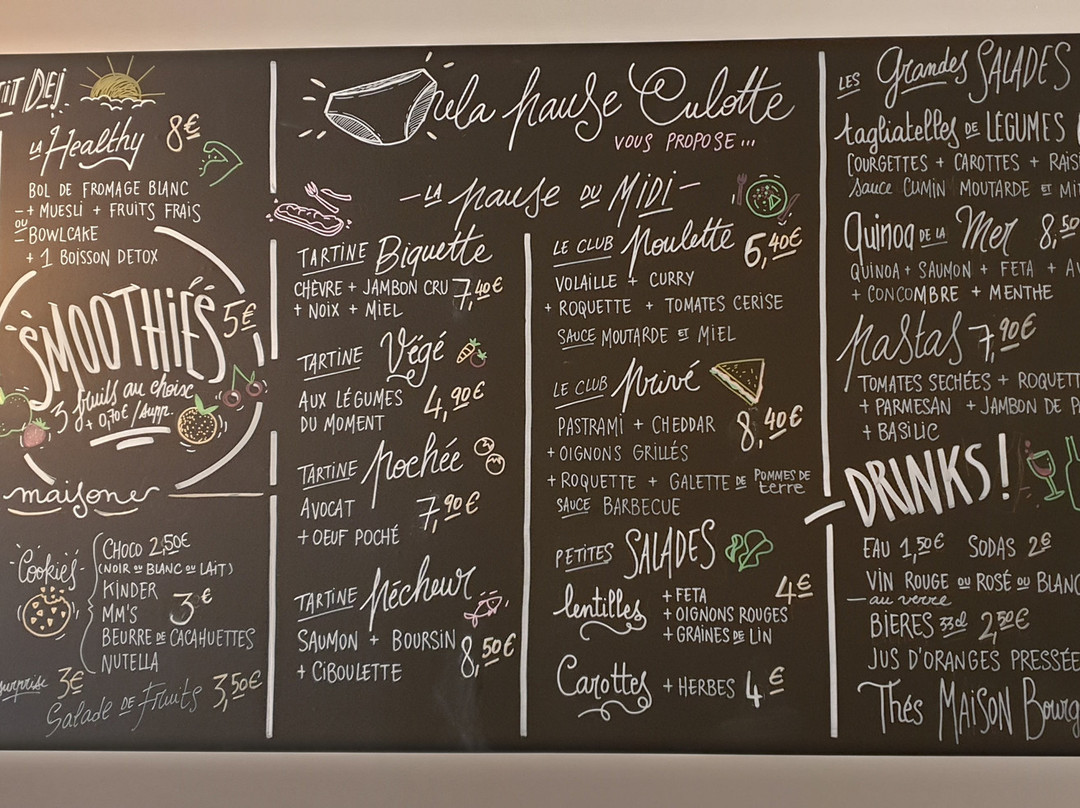 TIT DEJ
LA Healthy 8€
BOL DE FROMAGE BLANC
+ MUESLI + FRUITS FRAIS
OU
BOWLCAKE
+ 1 BOISSON DETOX
SMOOTHIES 5€
3 fruits au choix
+ 0,70€ / supp.
maison
Cookies
CHOCO 2,50€
(NOIR OU BLANC OU LAIT)
KINDER
MM'S
3€
BEURRE DE CACAHUETTES
NUTELLA
surprise 3€
Salade DE Fruits 3,50€
la pause Culotte
VOUS PROPOSE...
- LA pause DU MIDI -
TARTINE Biquette
CHÈVRE + JAMBON CRU 7,40€
+ NOIX + MIEL
TARTINE Végé
AUX LÉGUMES 4,90€
DU MOMENT
TARTINE pochée
AVOCAT 7,90€
+ OEUF POCHÉ
TARTINE pécheur
SAUMON + BOURSIN 8,50€
+ CIBOULETTE
LE CLUB poulette 6,40€
VOLAILLE + CURRY
+ ROQUETTE + TOMATES CERISE
SAUCE MOUTARDE ET MIEL
LE CLUB privé
PASTRAMI + CHEDDAR 8,40€
+ OIGNONS GRILLÉS
+ ROQUETTE + GALETTE DE POMMES DE terre
SAUCE BARBECUE
PETITES SALADES
4€
lentilles
+ FETA
+ OIGNONS ROUGES
+ GRAÎNES DE LIN
Carottes + HERBES 4€
LES Grandes SALADES
tagliatelles DE LÉGUMES
COURGETTES + CAROTTES + RAIS
Sauce CUMIN MOUTARDE ET MI
Quinoa DE LA Mer 8,50
QUINOA + SAUMON + FETA + AV
+ CONCOMBRE + MENTHE
pastas 7,90€
TOMATES SECHÉES + ROQUETT
+ PARMESAN + JAMBON DE PA
+ BASILIC
DRINKS!
EAU 1,50€ SODAS 2€
VIN ROUGE OU ROSÉ OU BLANC
au verre
BIERES 33cl 2,50€
JUS D'ORANGES PRESSÉE
Thés MAISON Bourg